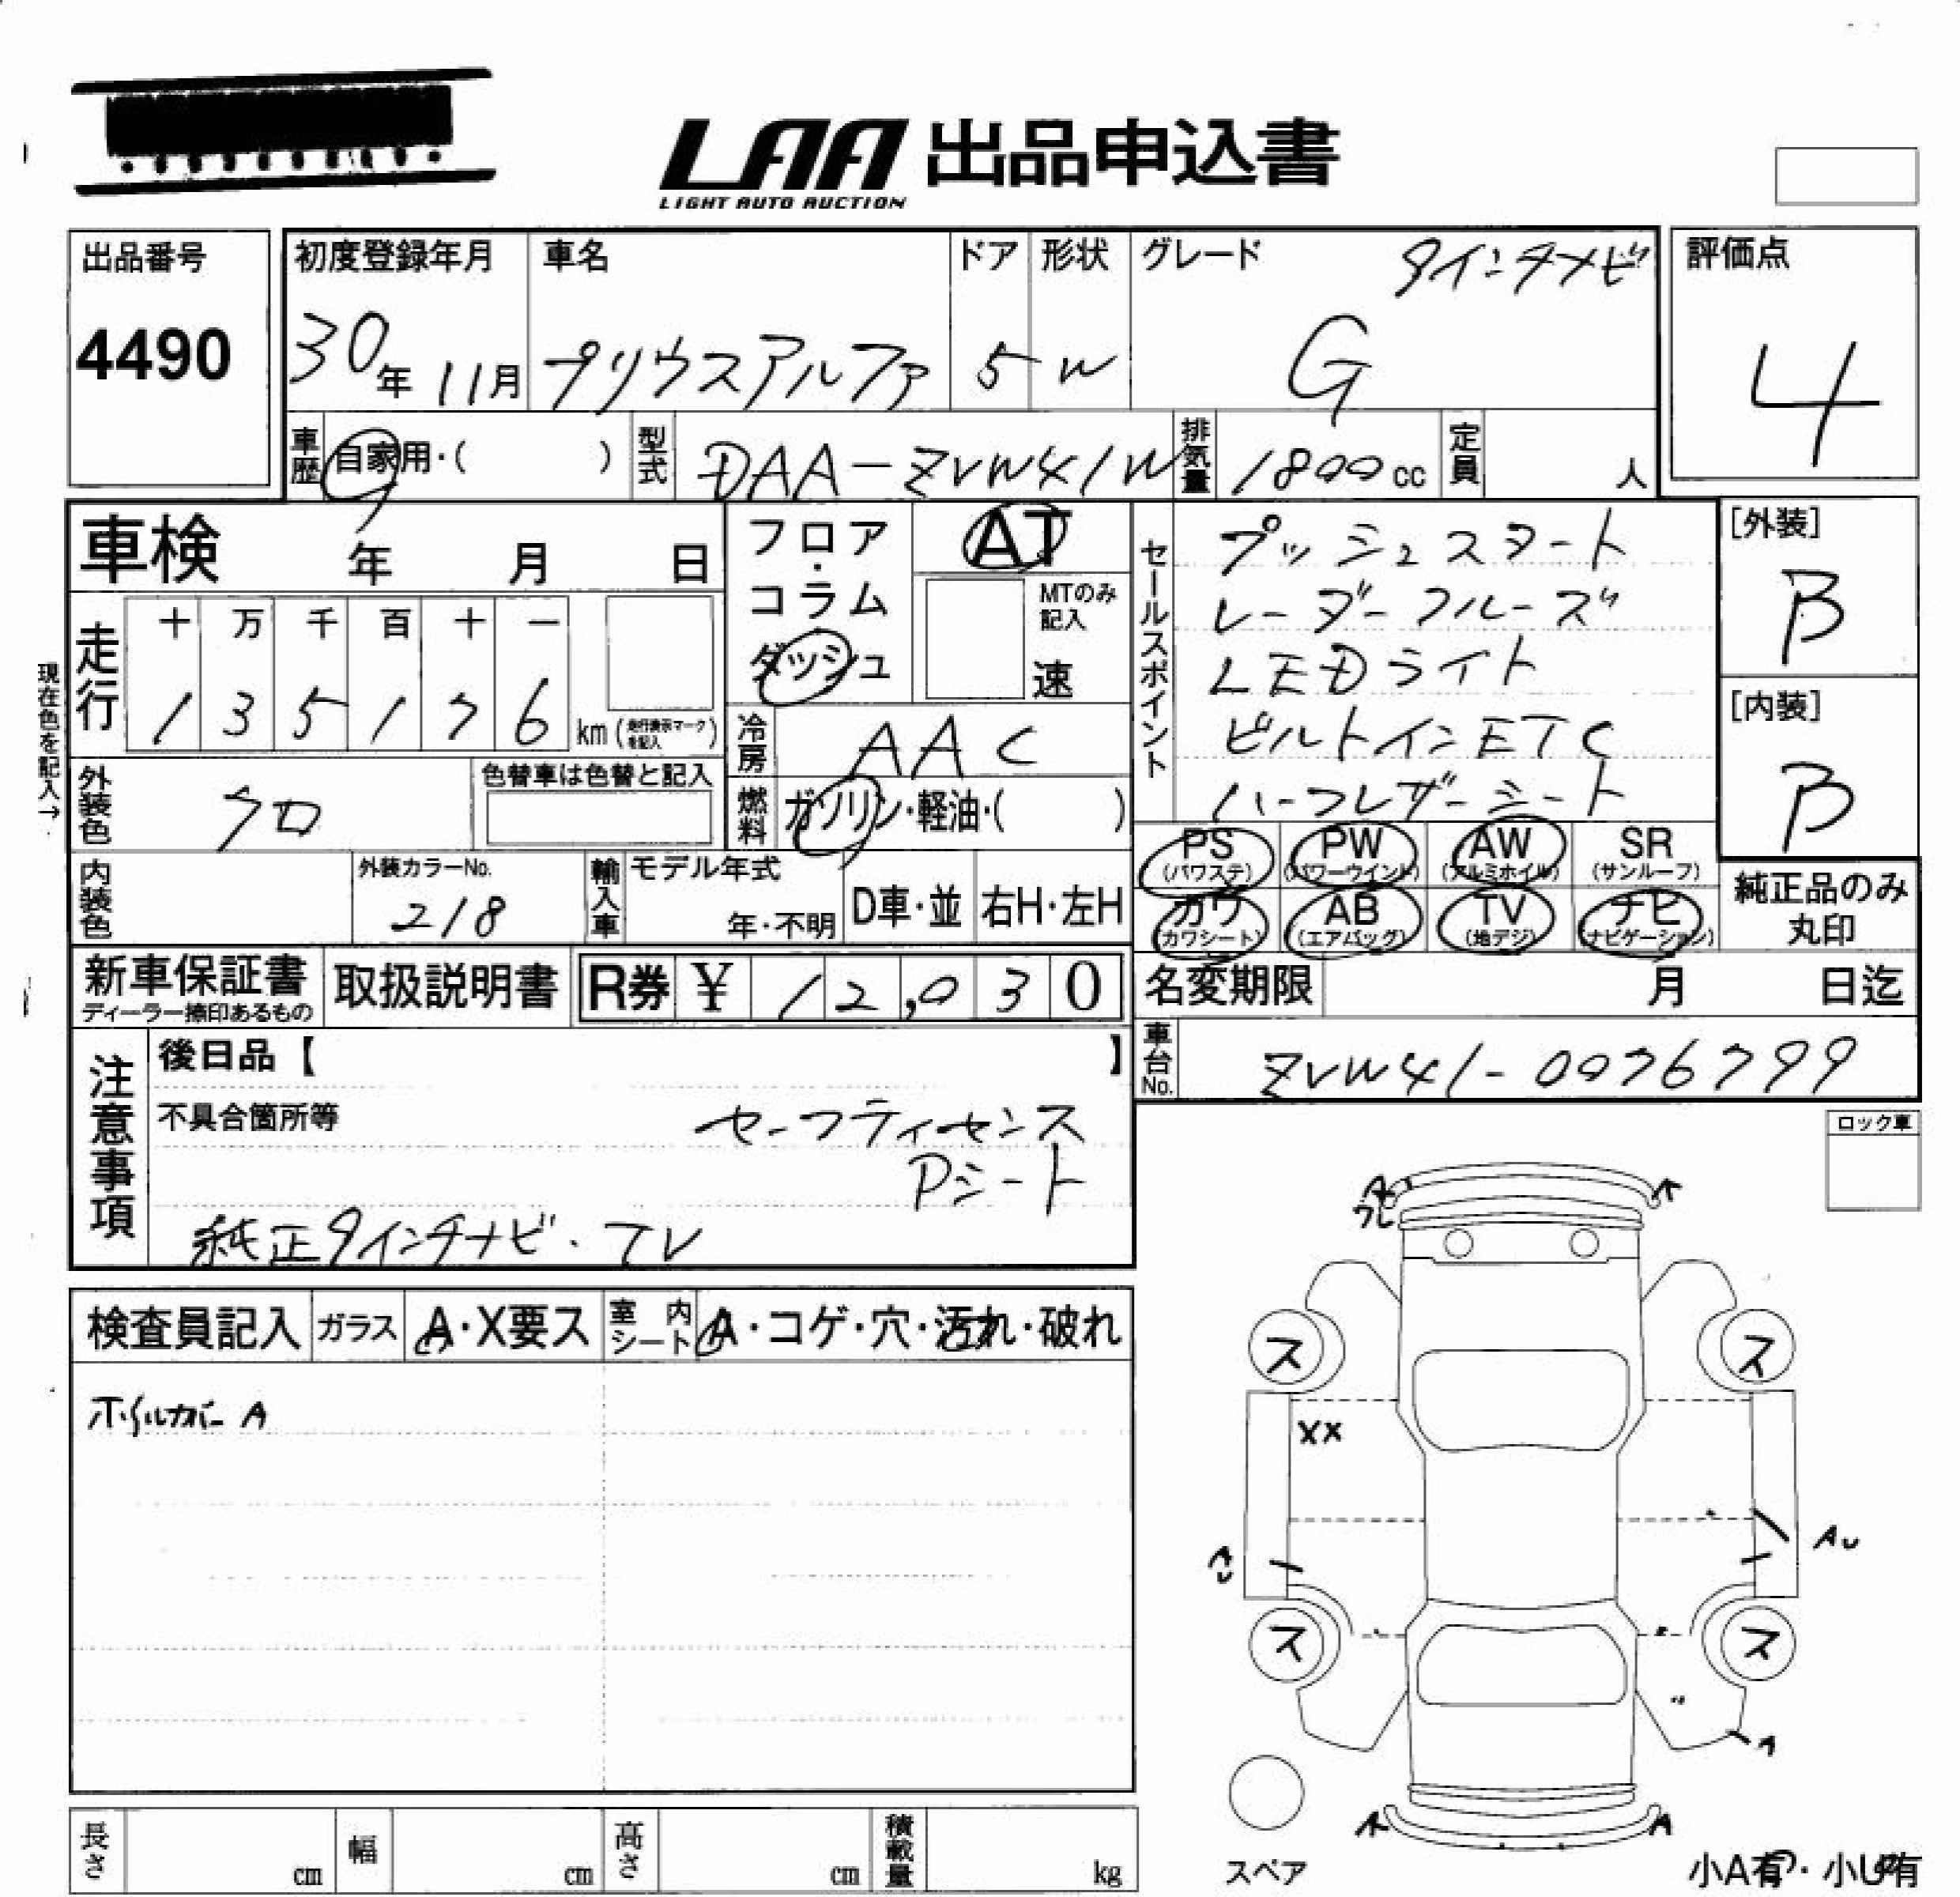 LAA 出品申込書
LIGHT AUTO AUCTION
出品番号
4490
初度登録年月
30年 11月
車名
プリウスアルファ
ドア
5
形状
W
グレード
9インチナビ
G
評価点
4
車歴
自家用・( )
型式
DAA-ZVW41W
排気量
1800cc
定員
人
車検 年 月 日
フロア・
コラム
ダッシュ
AT
MTのみ
記入
速
セールスポイント
プッシュスタート
レーダークルーズ
LEDライト
ビルトインETC
ハーフレザーシート
[外装]
B
[内装]
B
現在色を記入→
走行
十 万 千 百 十 一
1 3 5 1 7 6 km (走行表示マークを記入)
冷房
AAC
燃料
ガソリン・軽油・( )
外装色
クロ
色替車は色替と記入
内装色
外装カラーNo.
218
輸入車
モデル年式
年・不明
D車・並
右H・左H
PS
(パワステ)
PW
(パワーウインド)
AW
(アルミホイル)
SR
(サンルーフ)
カワ
(カワシート)
AB
(エアバッグ)
TV
(地デジ)
ナビ
(ナビゲーション)
純正品のみ
丸印
新車保証書
ディーラー捺印あるもの
取扱説明書
R券 ¥ 12,030
名変期限 月 日迄
車台No.
ZVW41-0076799
注意事項
後日品【 】
不具合箇所等
セーフティセンス
Pシート
純正9インチナビ・TV
ロック車
検査員記入
ガラス
A・X要ス
室内
シート
A・コゲ・穴・汚れ・破れ
ホイルカバー A
A
ワレ
A
ス
ス
XX
AU
AU
ス
ス
A
A
A
スペア
小A有・小U有
長さ
cm
幅
cm
高さ
cm
積載量
kg